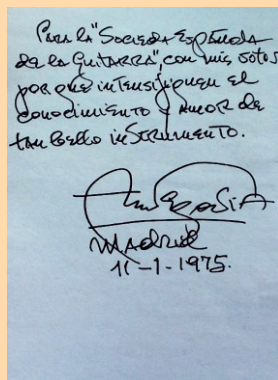 Para la "Sociedad Española
de la Guitarra", con mis votos
por que intensifiquen el
conocimiento y amor de
tan bello instrumento.
Andrés Segovia
Madrid
11-1-1975.